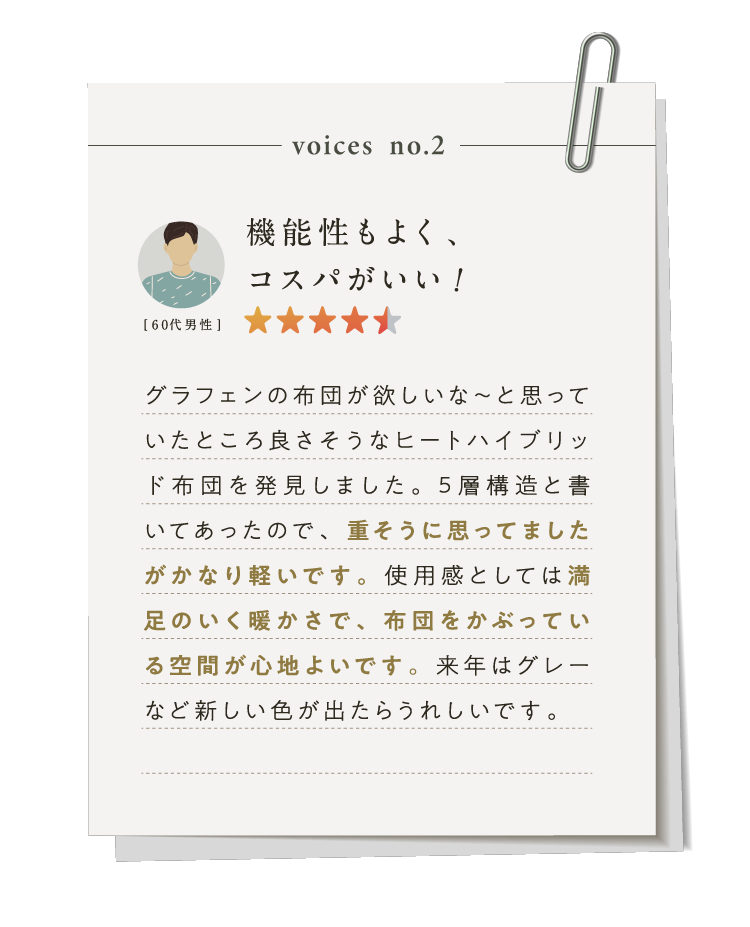 voices no.2
機能性もよく、
コスパがいい！
[60代男性]
グラフェンの布団が欲しいな～と思って
いたところ良さそうなヒートハイブリッ
ド布団を発見しました。5層構造と書
いてあったので、重そうに思ってました
がかなり軽いです。使用感としては満
足のいく暖かさで、布団をかぶってい
る空間が心地よいです。来年はグレー
など新しい色が出たらうれしいです。